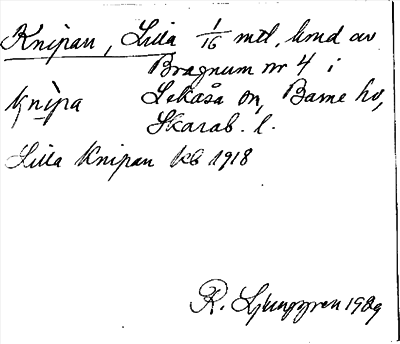 Knipan, Lilla 1/16 mtl, hmd av
Bragnum nr 4 i
knìpa Lekåsa sn, Barne hd,
Skarab. l.
Lilla Knipan kb 1918
R. Ljunggren 1929